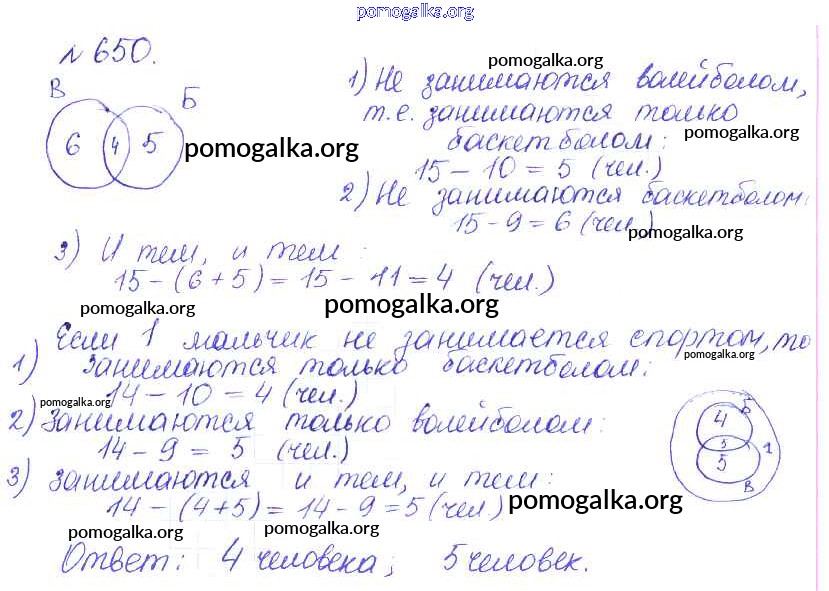 pomogalka.org
№ 650.
В
Б
6 4 5
pomogalka.org
pomogalka.org
1) Не занимаются волейболом,
т.е. занимаются только
баскетболом:
pomogalka.org
15 - 10 = 5 (чел.)
2) Не занимаются баскетболом:
15 - 9 = 6 (чел.)
pomogalka.org
3) И тем, и тем:
15 - (6 + 5) = 15 - 11 = 4 (чел.)
pomogalka.org
pomogalka.org
Если 1 мальчик не занимается спортом, то
pomogalka.org
1) занимаются только баскетболом:
14 - 10 = 4 (чел.)
pomogalka.org
2) Занимаются только волейболом:
14 - 9 = 5 (чел.)
Б
4
5
5
1
В
3) занимаются и тем, и тем:
14 - (4+5) = 14 - 9 = 5 (чел.)
pomogalka.org
pomogalka.org
pomogalka.org
Ответ: 4 человека; 5 человек.